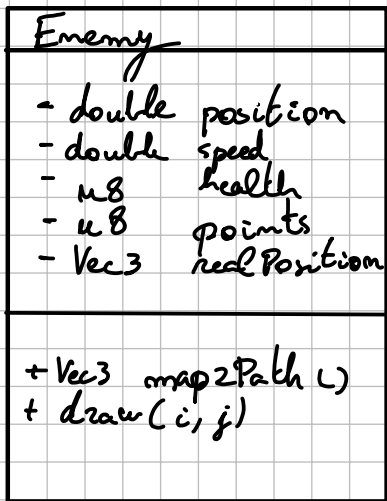 Enemy
- double position
- double speed
- u8 health
- u8 points
- Vec3 realPosition
+ Vec3 map2Path ()
+ draw(i, j)